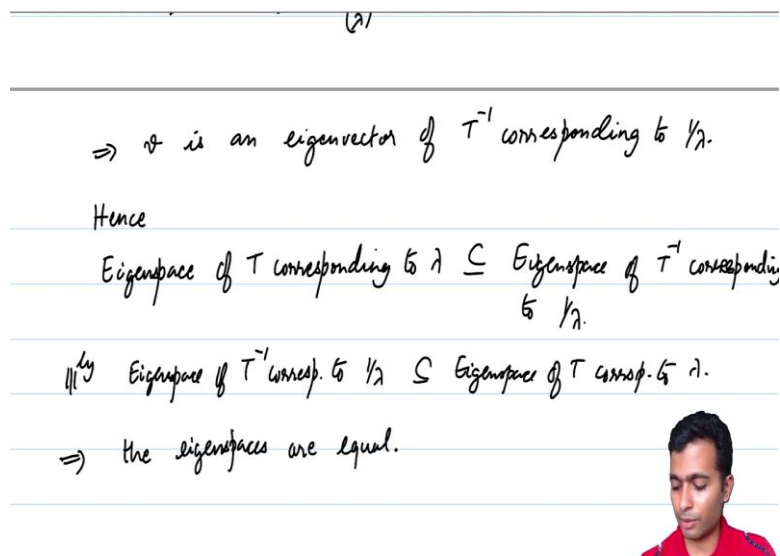 (λ)
⇒ v is an eigenvector of T⁻¹ corresponding to 1/λ.
Hence
Eigenspace of T corresponding to λ ⊆ Eigenspace of T⁻¹ corresponding
to 1/λ.
|||ly Eigenspace of T⁻¹ corresp. to 1/λ ⊆ Eigenspace of T corresp. to λ.
⇒ the eigenspaces are equal.